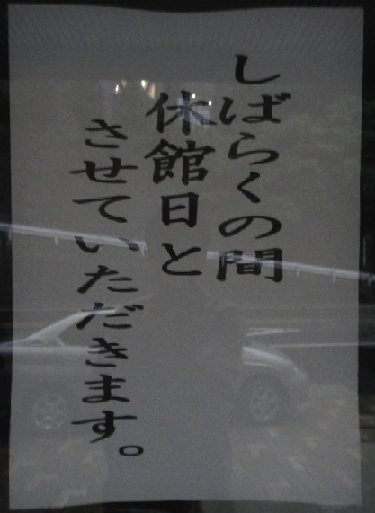 しばらくの間
休館日と
させていただきます。